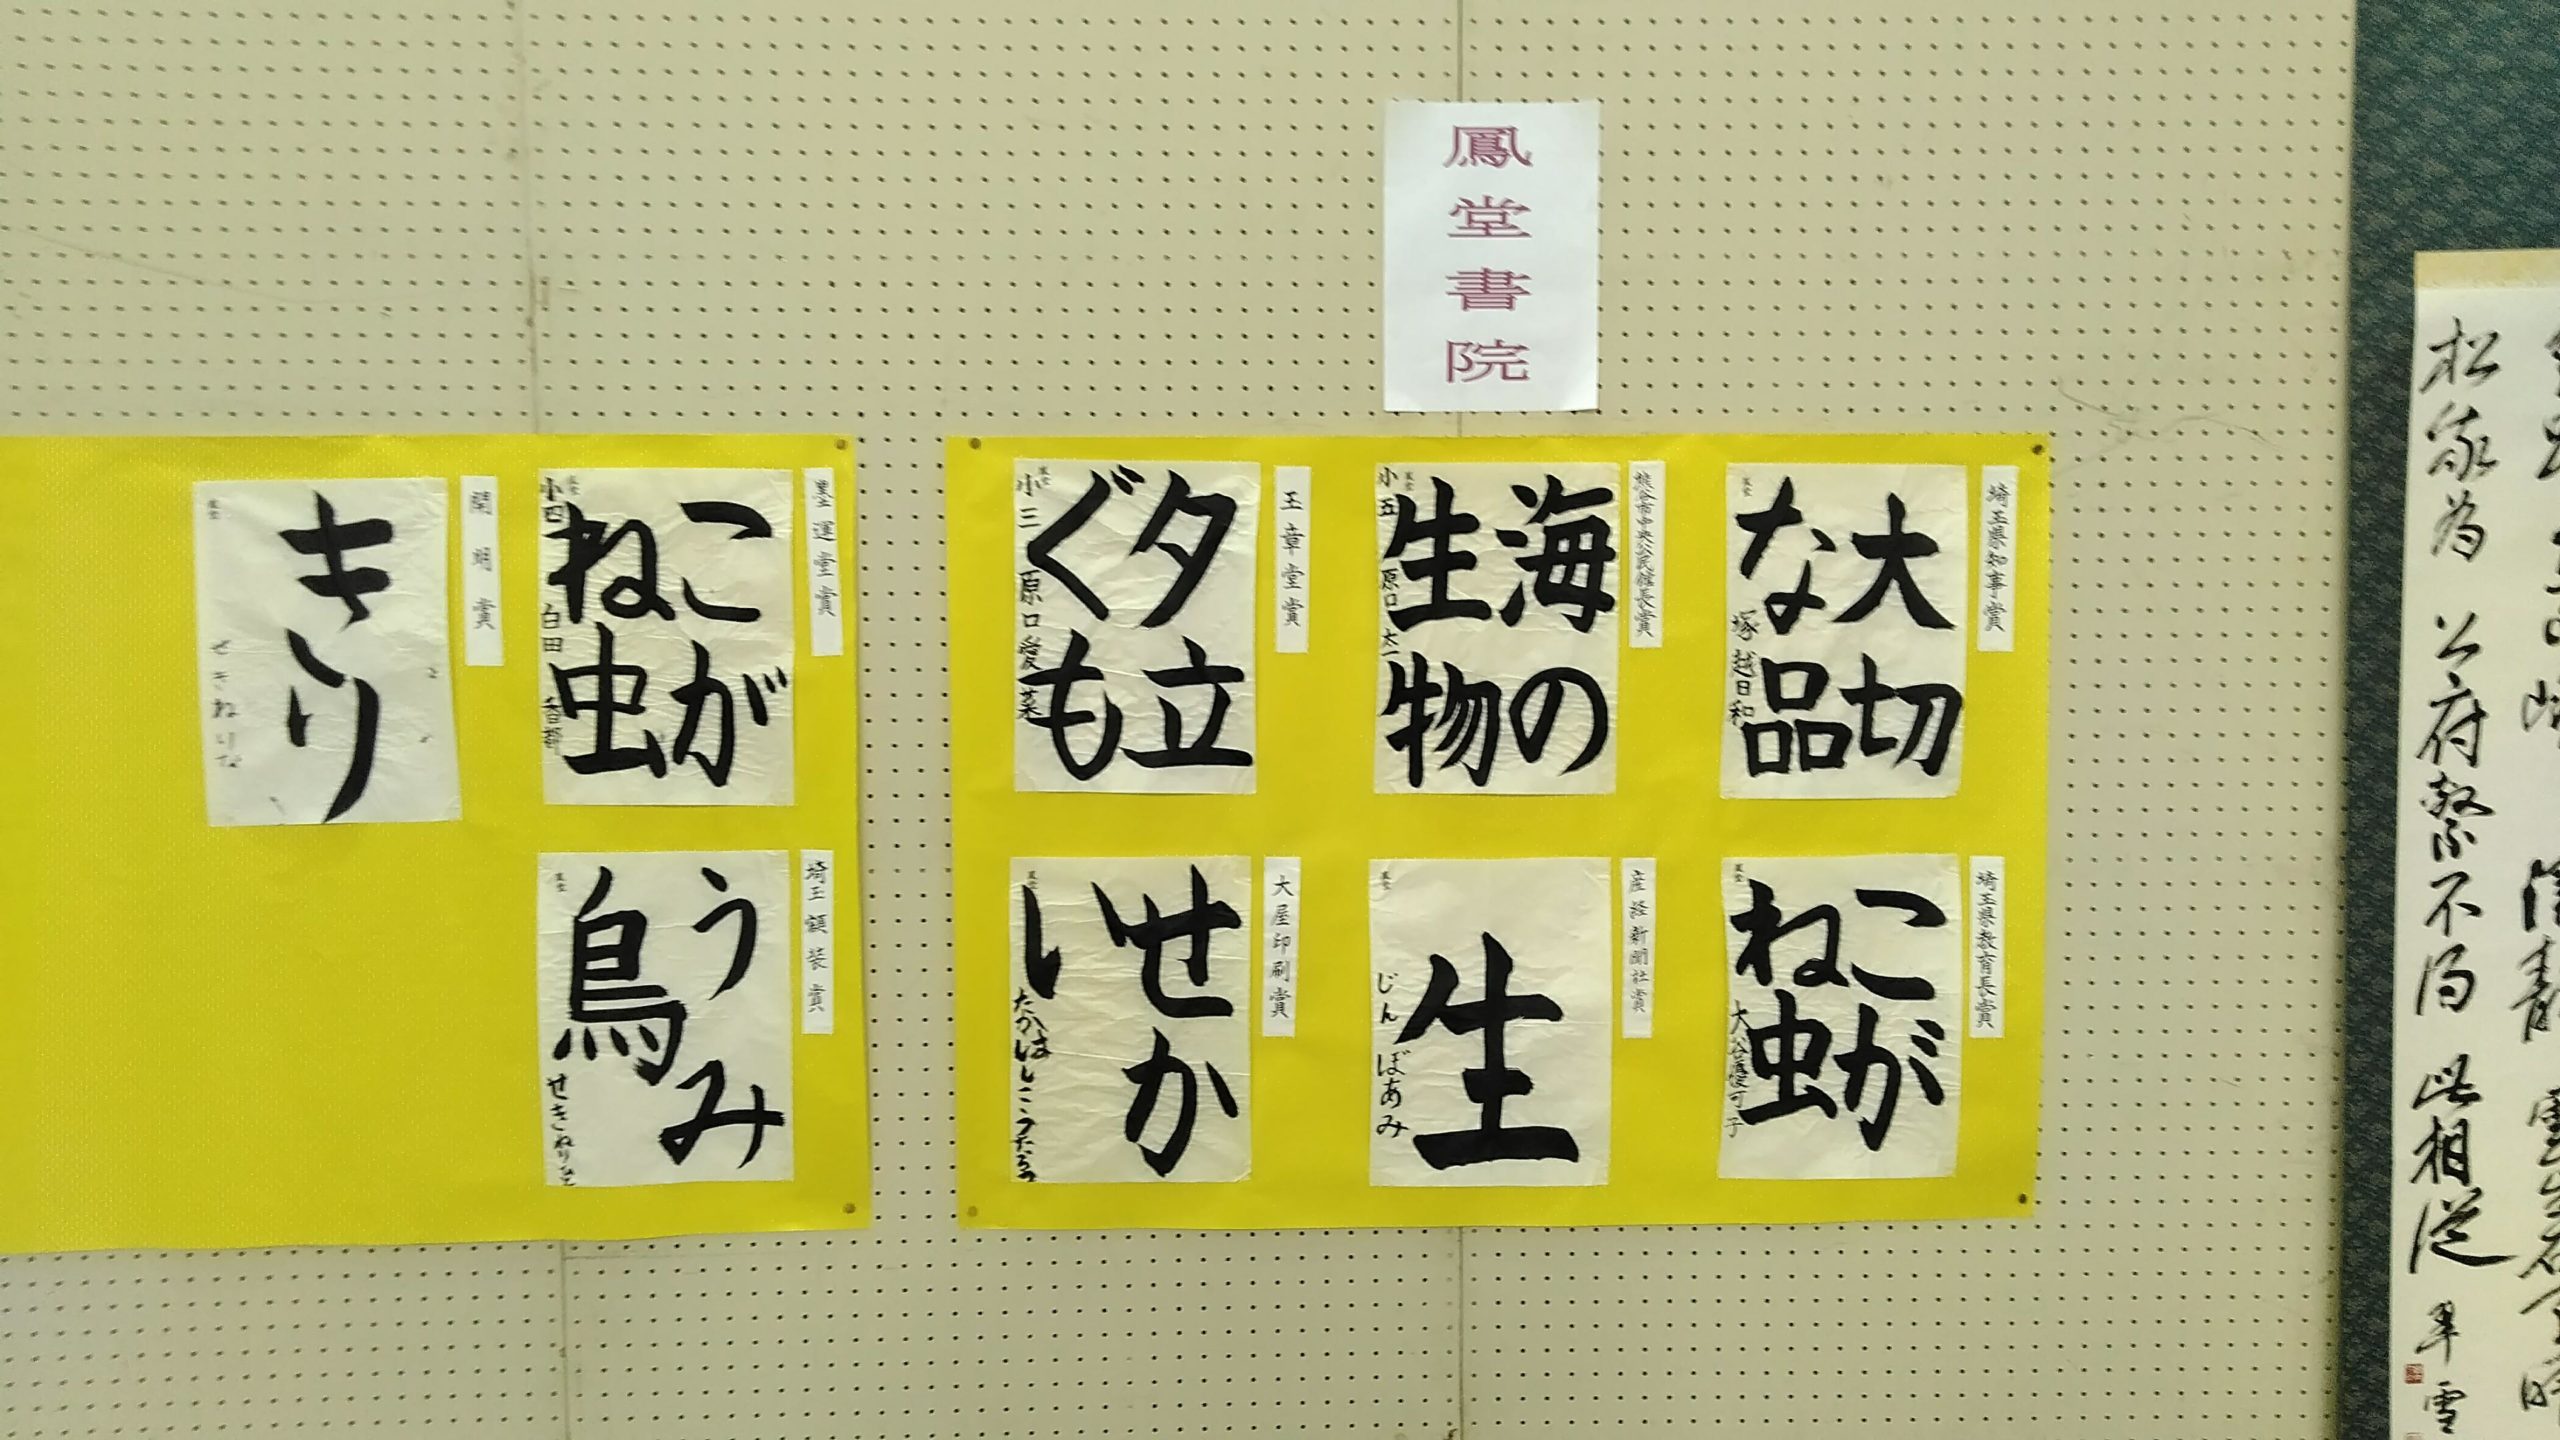 鳳堂書院
埼玉県知事賞
大切
な品
塚越日和
熊谷市中央公民館長賞
海の
生物
小五 原口太一
玉章堂賞
夕立
ぐも
小三 原口愛菜
埼玉県教育長賞
こが
ね虫
産経新聞社賞
生
じんぼあみ
大屋印刷賞
せか
い
たかはしこうたろう
墨運堂賞
こが
ね虫
小四 白田 香都
開明賞
きり
せきねりな
埼玉額装賞
うみ
鳥
松家為
公府繁不得
此相従
翠雪